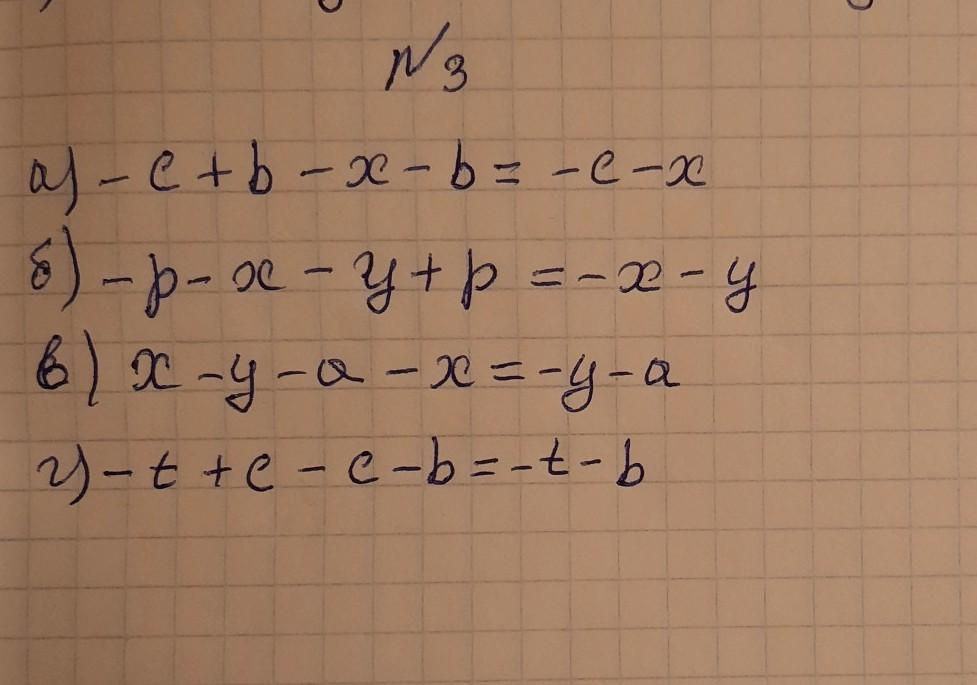 №3
а) - c + b - x - b = - c - x
б) - p - x - y + p = - x - y
в) x - y - a - x = - y - a
г) - t + c - c - b = - t - b